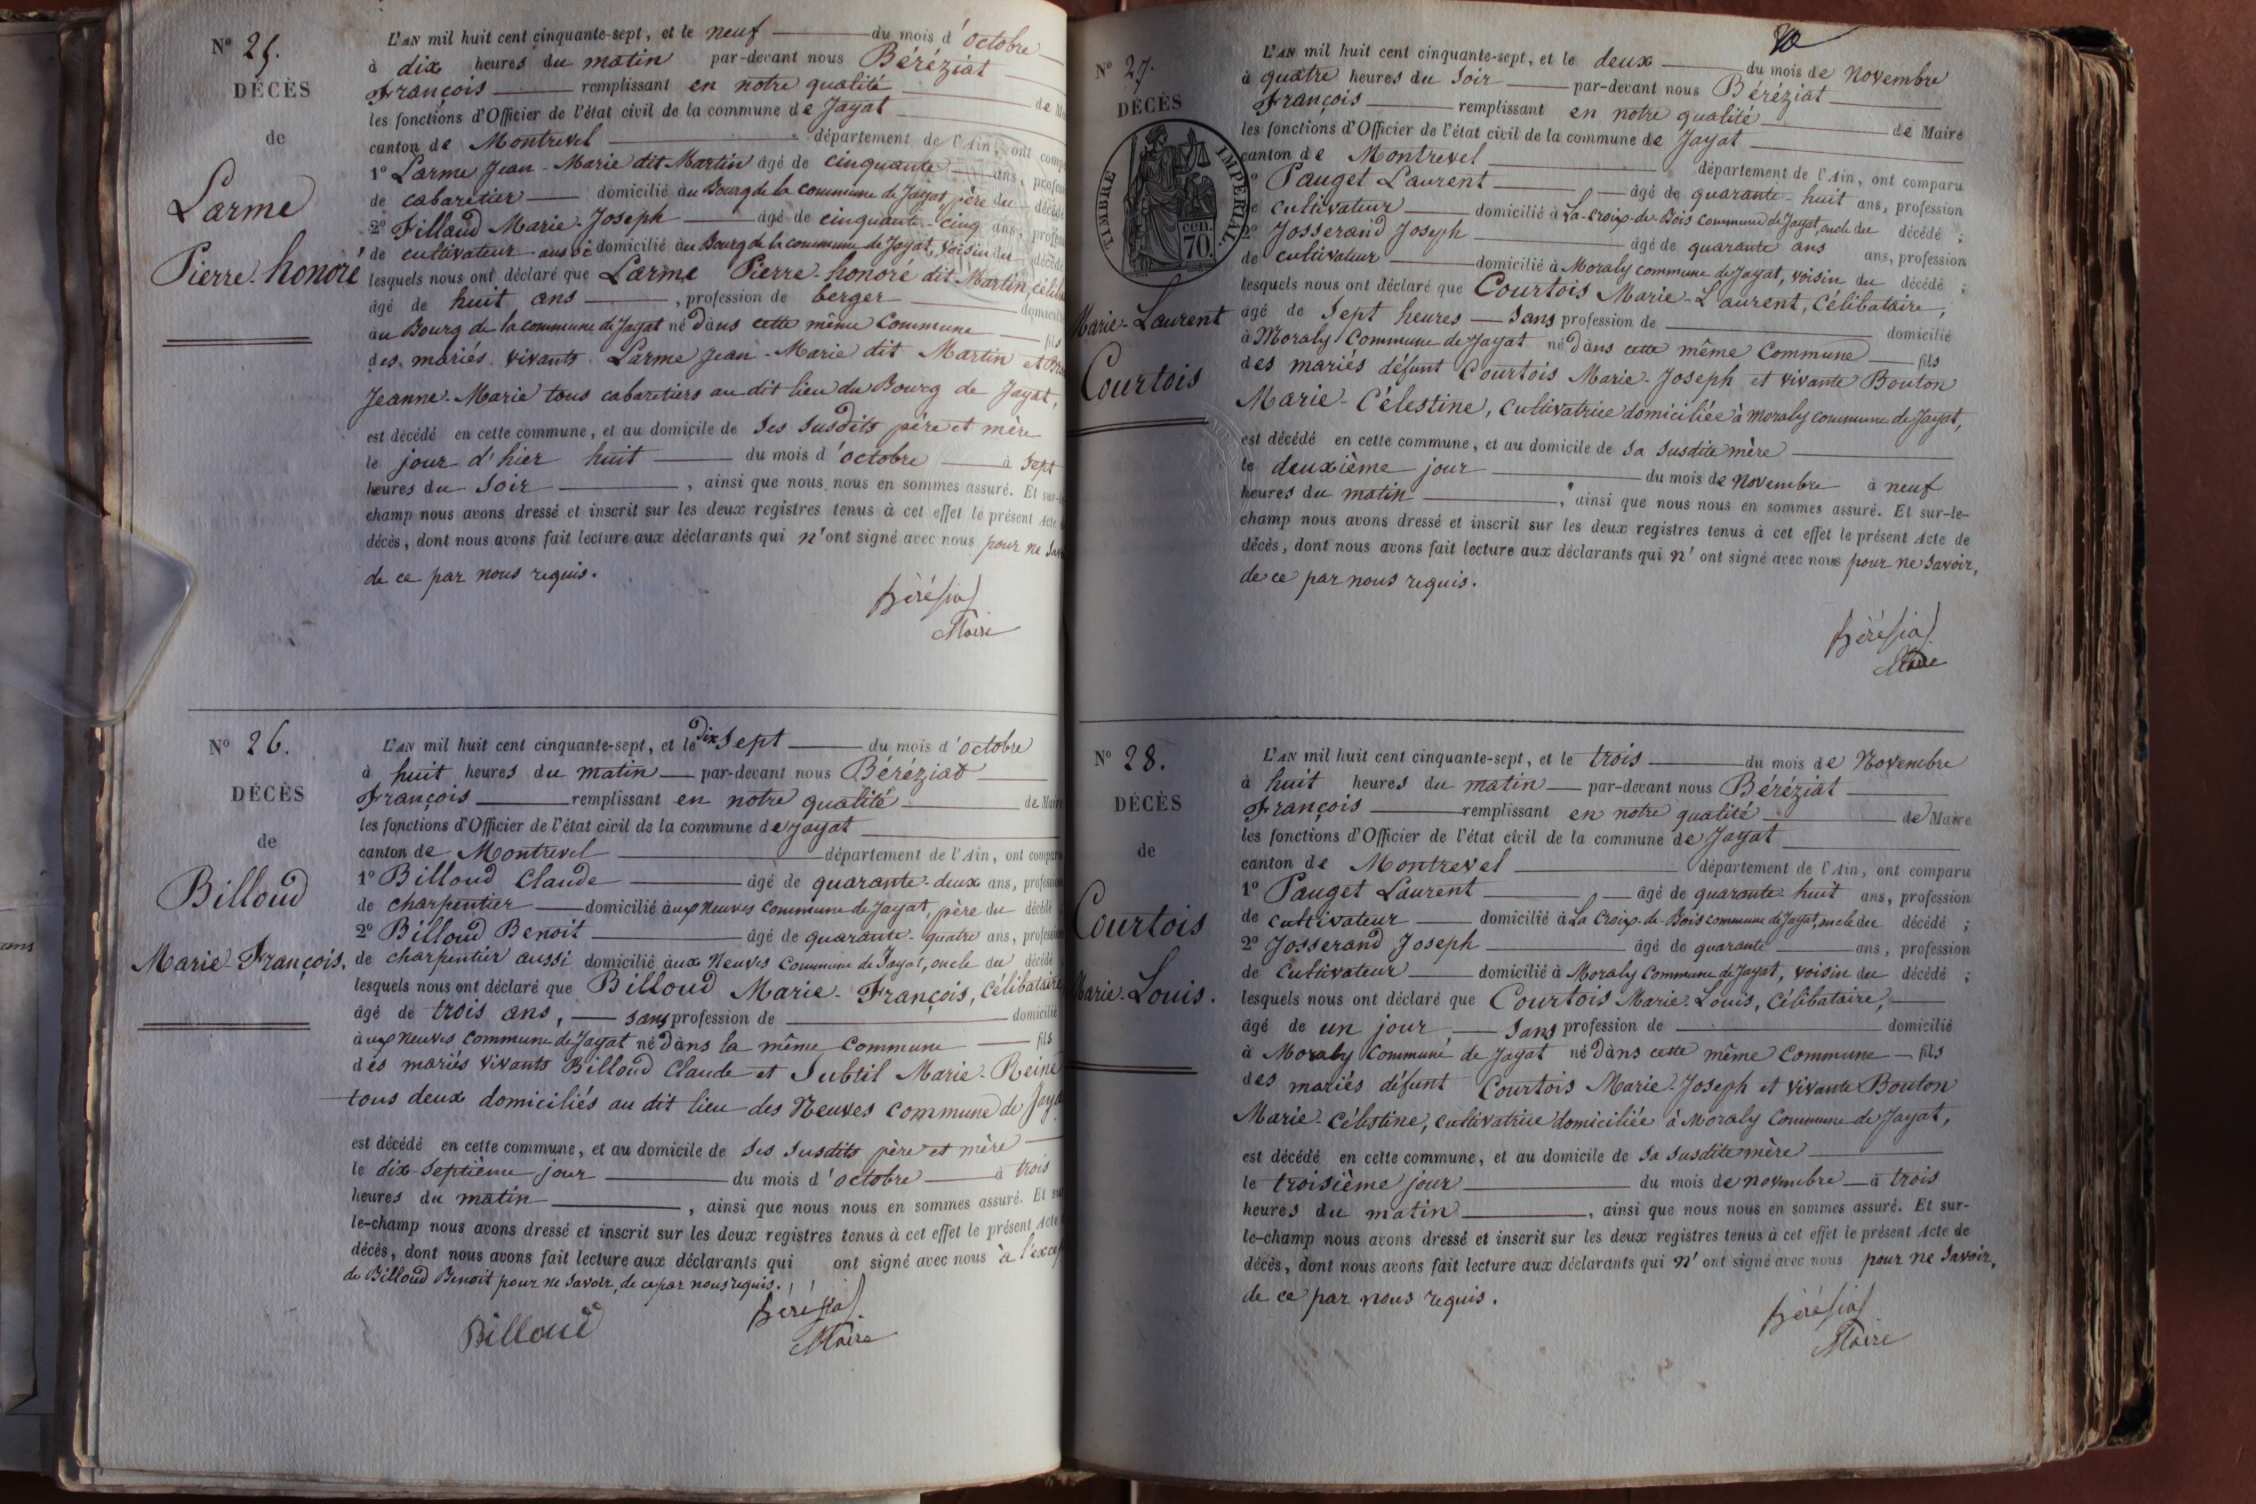 N° 25.
DÉCÈS
de
Larme
Pierre-honoré
L'AN mil huit cent cinquante-sept, et le neuf du mois d'octobre
à dix heures du matin par-devant nous Béréziat
François remplissant en notre qualité de
les fonctions d'Officier de l'état civil de la commune de Jayat
canton de Montrevel département de l'Ain, ont
1° Larme Jean-Marie dit Martin âgé de cinquante ans,
de cabaretier domicilié au Bourg de la commune de Jayat, père du décédé
2° Fillaud Marie-Joseph âgé de cinquante-cinq ans,
de cultivateur aussi domicilié au Bourg de la commune de Jayat, voisin du décédé
lesquels nous ont déclaré que Larme Pierre-honoré dit Martin,
âgé de huit ans, profession de berger
au Bourg de la commune de Jayat né dans cette même Commune fils
des mariés vivants Larme Jean-Marie dit Martin et
Jeanne-Marie tous cabaretiers au dit lieu du Bourg de Jayat,
est décédé en cette commune, et au domicile de ses susdits père et mère
le jour d'hier huit du mois d'octobre à sept
heures du soir, ainsi que nous nous en sommes assuré. Et
champ nous avons dressé et inscrit sur les deux registres tenus à cet effet le présent Acte
décès, dont nous avons fait lecture aux déclarants qui n'ont signé avec nous pour ne
de ce par nous requis.
Béréziat
Maire
N° 26.
DÉCÈS
de
Billoud
Marie-François.
L'AN mil huit cent cinquante-sept, et le dix sept du mois d'octobre
à huit heures du matin par-devant nous Béréziat
François remplissant en notre qualité de Maire
les fonctions d'Officier de l'état civil de la commune de Jayat
canton de Montrevel département de l'Ain, ont
1° Billoud Claude âgé de quarante-deux ans,
de charpentier domicilié aux Neuves Commune de Jayat, père du décédé
2° Billoud Benoit âgé de quarante-quatre ans,
de charpentier aussi domicilié aux Neuves Commune de Jayat, oncle du décédé
lesquels nous ont déclaré que Billoud Marie-François, Célibataire
âgé de trois ans, sans profession de domicilié
aux Neuves Commune de Jayat né dans la même Commune fils
des mariés vivants Billoud Claude et Subtil Marie-Reine
tous deux domiciliés au dit lieu des Neuves commune de
est décédé en cette commune, et au domicile de ses susdits père et mère
le dix-septième jour du mois d'octobre à trois
heures du matin, ainsi que nous nous en sommes assuré. Et
le-champ nous avons dressé et inscrit sur les deux registres tenus à cet effet le présent Acte
décès, dont nous avons fait lecture aux déclarants qui ont signé avec nous à
de Billoud Benoit pour ne savoir, de ce par nous requis.
Billoud
Béréziat
Maire
N° 27.
DÉCÈS
TIMBRE IMPÉRIAL
cen.
70.
Marie-Laurent
Courtois
L'AN mil huit cent cinquante-sept, et le deux du mois de Novembre
à quatre heures du soir par-devant nous Béréziat
François remplissant en notre qualité de Maire
les fonctions d'Officier de l'état civil de la commune de Jayat
canton de Montrevel département de l'Ain, ont comparu
Pauget Laurent âgé de quarante-huit ans, profession
de cultivateur domicilié à La-Croix-de-Bois commune de Jayat, oncle du décédé ;
2° Josserand Joseph âgé de quarante ans ans, profession
de cultivateur domicilié à Moraly commune de Jayat, voisin du décédé ;
lesquels nous ont déclaré que Courtois Marie-Laurent, Célibataire,
âgé de sept heures sans profession de domicilié
à Moraly Commune de Jayat né dans cette même Commune fils
des mariés défunt Courtois Marie-Joseph et vivante Bouton
Marie-Célestine, cultivatrice domiciliée à Moraly commune de Jayat,
est décédé en cette commune, et au domicile de sa susdite mère
le deuxième jour du mois de novembre à neuf
heures du matin, ainsi que nous nous en sommes assuré. Et sur-le-
champ nous avons dressé et inscrit sur les deux registres tenus à cet effet le présent Acte de
décès, dont nous avons fait lecture aux déclarants qui n'ont signé avec nous pour ne savoir,
de ce par nous requis.
Béréziat
Maire
N° 28.
DÉCÈS
de
Courtois
Marie-Louis.
L'AN mil huit cent cinquante-sept, et le trois du mois de Novembre
à huit heures du matin par-devant nous Béréziat
François remplissant en notre qualité de Maire
les fonctions d'Officier de l'état civil de la commune de Jayat
canton de Montrevel département de l'Ain, ont comparu
1° Pauget Laurent âgé de quarante-huit ans, profession
de cultivateur domicilié à La Croix-de-Bois commune de Jayat, oncle du décédé ;
2° Josserand Joseph âgé de quarante ans, profession
de cultivateur domicilié à Moraly Commune de Jayat, voisin du décédé ;
lesquels nous ont déclaré que Courtois Marie-Louis, Célibataire,
âgé de un jour sans profession de domicilié
à Moraly Commune de Jayat né dans cette même Commune fils
des mariés défunt Courtois Marie-Joseph et vivante Bouton
Marie-Célestine, cultivatrice domiciliée à Moraly Commune de Jayat,
est décédé en cette commune, et au domicile de sa susdite mère
le troisième jour du mois de novembre à trois
heures du matin, ainsi que nous nous en sommes assuré. Et sur-
le-champ nous avons dressé et inscrit sur les deux registres tenus à cet effet le présent Acte de
décès, dont nous avons fait lecture aux déclarants qui n'ont signé avec nous pour ne savoir,
de ce par nous requis.
Béréziat
Maire